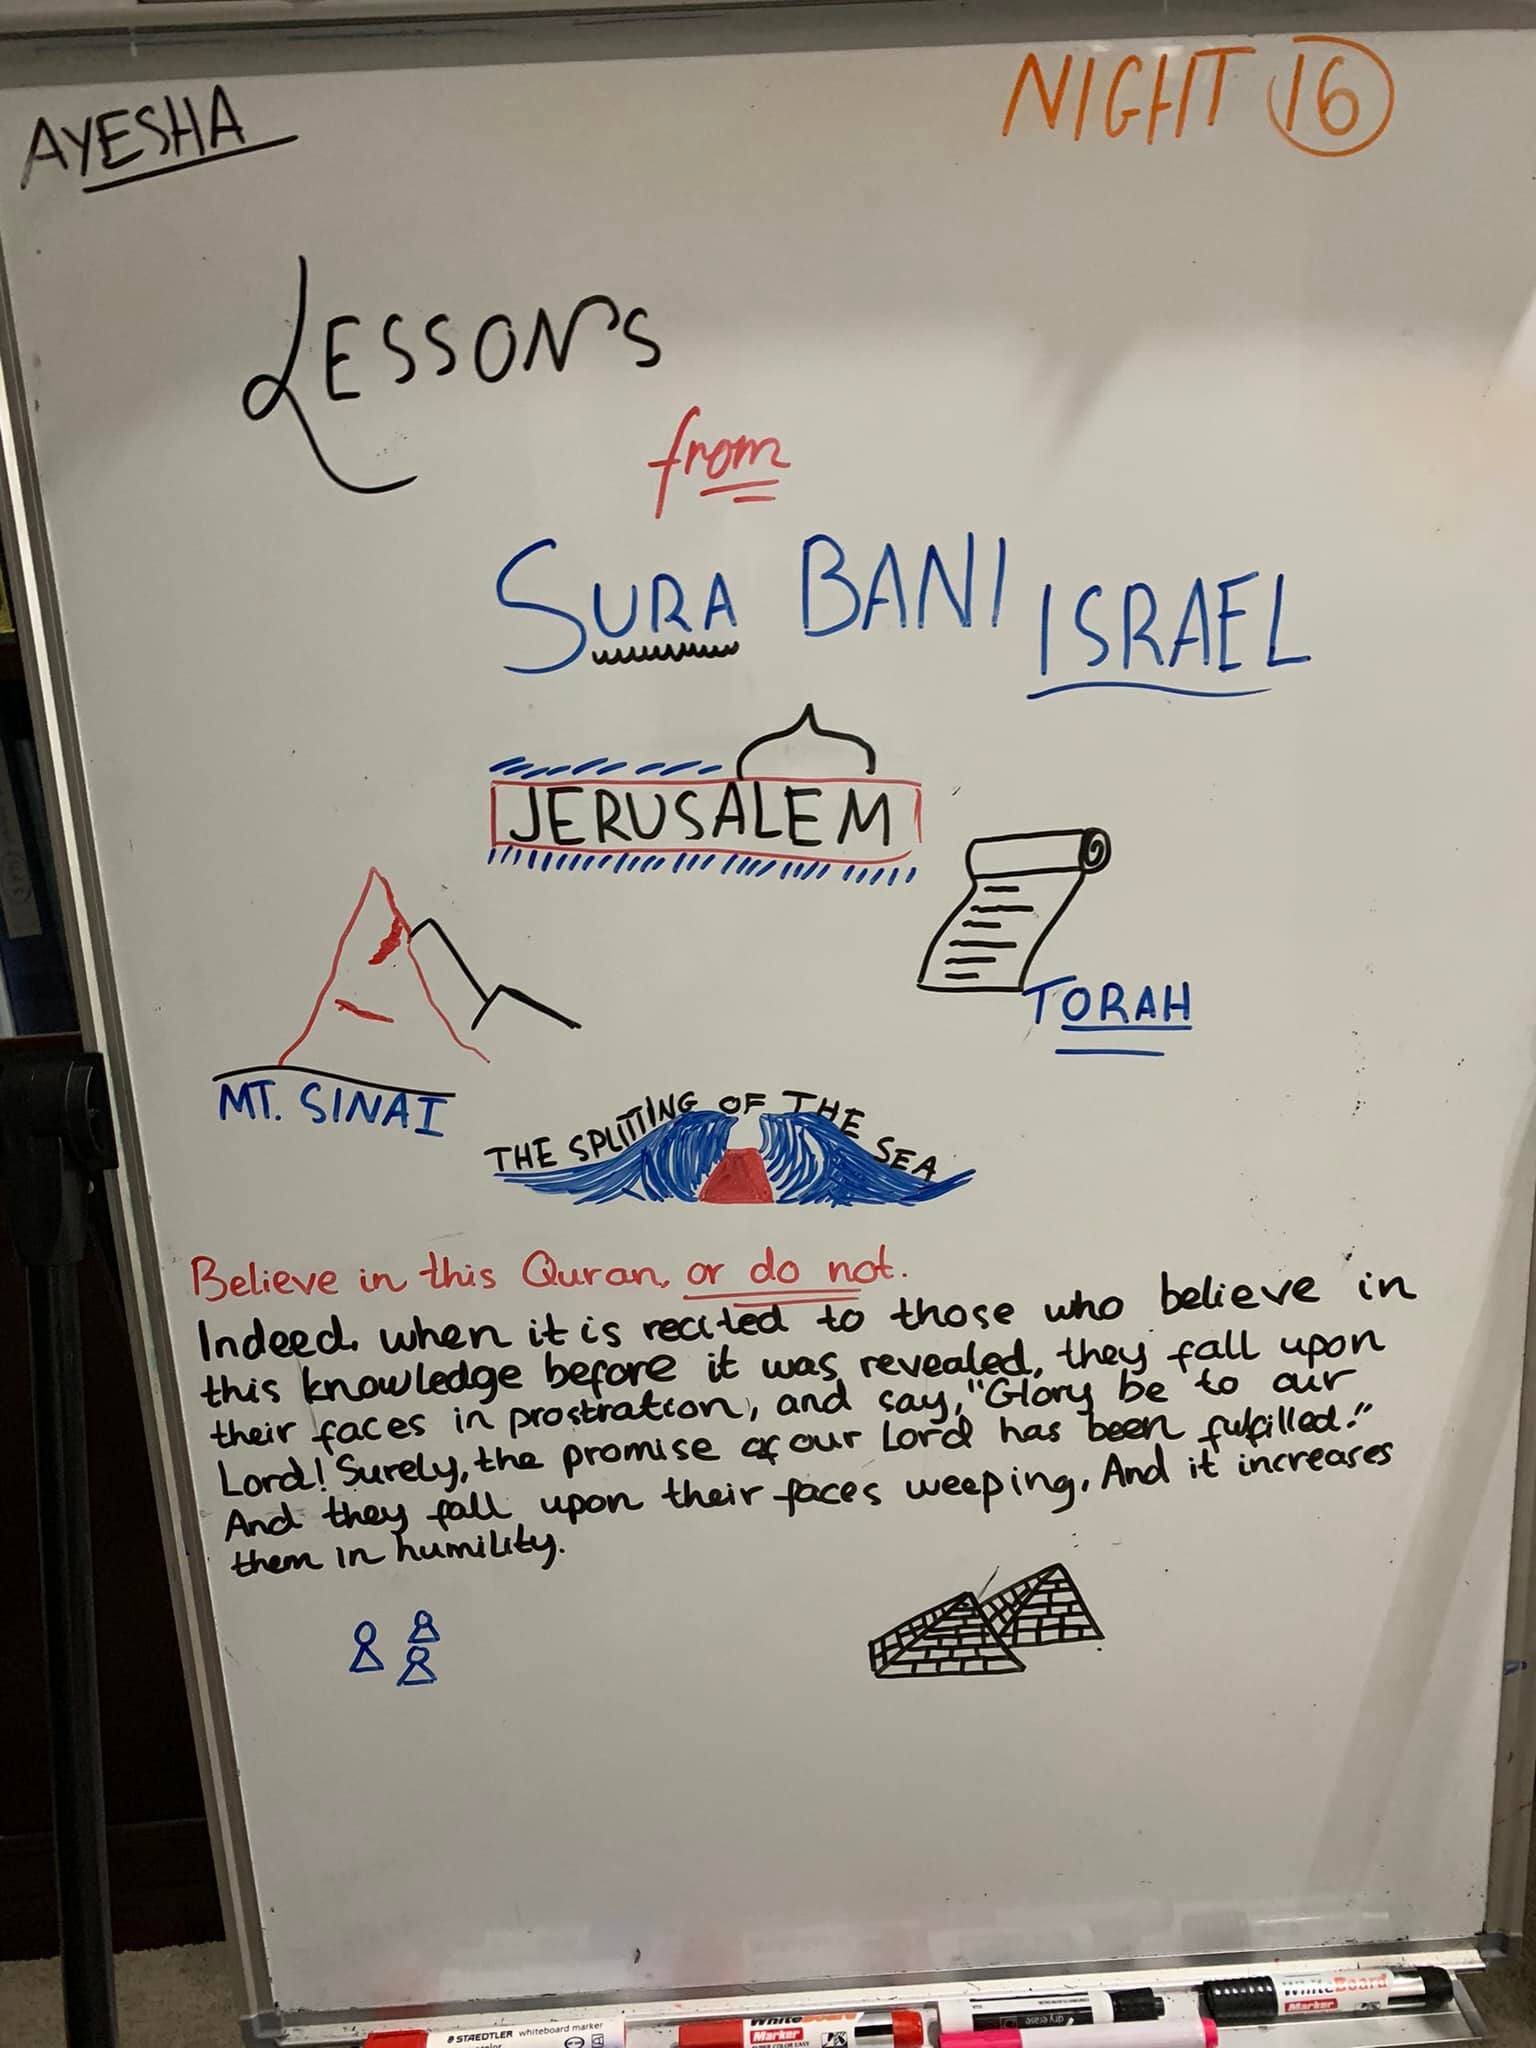 AYESHA
NIGHT 16
LESSONS
from
SURA BANI ISRAEL
JERUSALEM
TORAH
MT. SINAI
THE SPLITTING OF THE SEA
Believe in this Quran, or do not.
Indeed, when it is recited to those who believe in
this knowledge before it was revealed, they fall upon
their faces in prostration, and say, "Glory be to our
Lord! Surely, the promise of our Lord has been fulfilled."
And they fall upon their faces weeping. And it increases
them in humility.
STAEDTLER whiteboard marker
WhiteBoard
Marker
SUPER COLOR EASY
dry erase
WhiteBoard
Marker